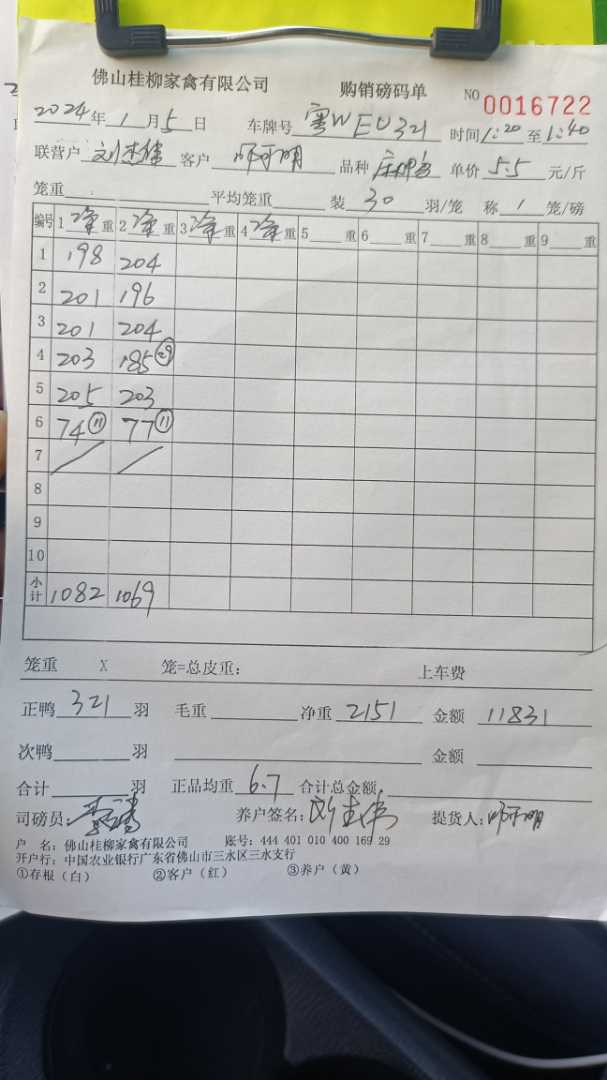 佛山桂柳家禽有限公司 购销磅码单 NO 0016722
2024年1月5日 车牌号 粤WEU321 时间1:20至1:40
联营户 客户 品种 单价 5.5 元/斤
笼重 平均笼重 装 30 羽/笼 称 1 笼/磅
编号 1 净重 2 净重 3 净重 4 净重 5 重 6 重 7 重 8 重 9 重
1 198 204
2 201 196
3 201 204
4 203 185 (29)
5 205 203
6 74 (11) 77 (11)
7 / /
8
9
10
小计 1082 1069
笼重 X 笼=总皮重: 上车费
正鸭 321 羽 毛重 净重 2151 金额 11831
次鸭 羽 金额
合计 羽 正品均重 6.7 合计总金额
司磅员: 养户签名: 提货人:
户 名: 佛山桂柳家禽有限公司 账号: 444 401 010 400 169 29
开户行: 中国农业银行广东省佛山市三水区三水支行
①存根(白) ②客户(红) ③养户(黄)